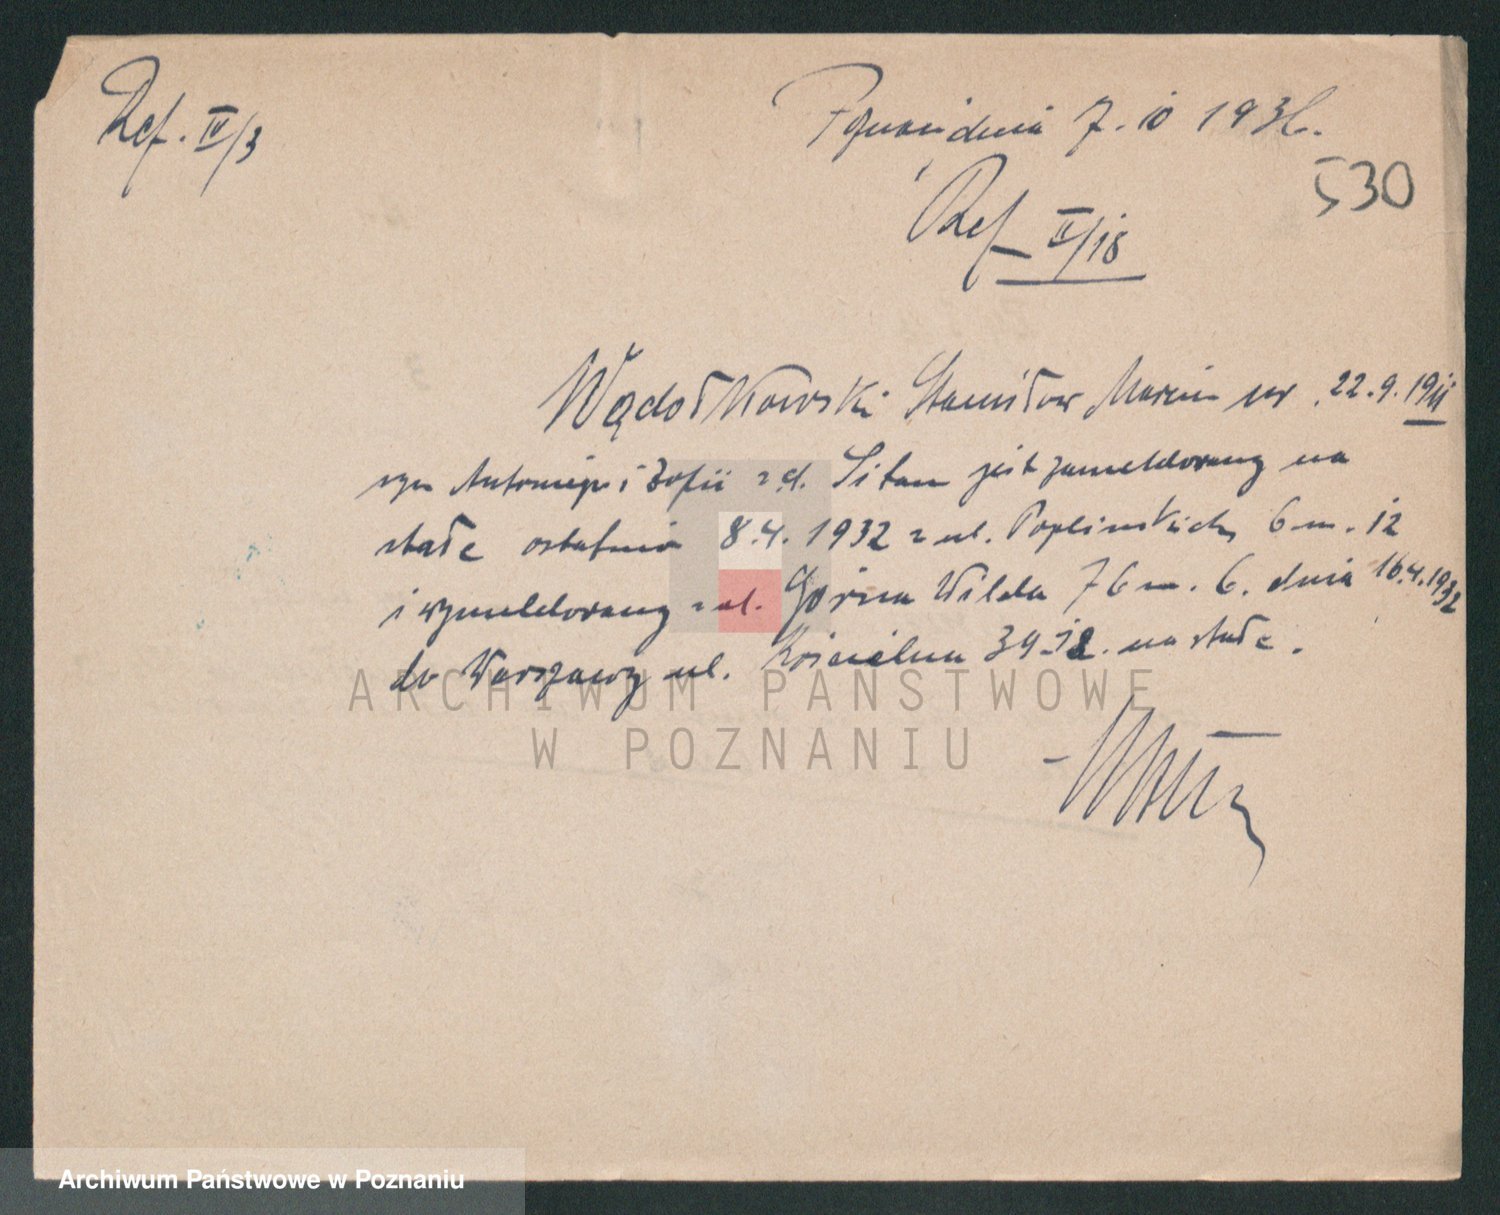 Ref. IV/3
Poznań dnia 7. 10 1936.
530
Ref II/18
Wądołkowski Stanisław Marcin ur. 22.9.1911
syn Antoniego i Zofii z d. Sitan jest zameldowany na
stałe ostatnio 8.4.1932 z ul. Poplinskich 6 m. 12
i wymeldowany z ul. Górna Wilda 76 m. 6. dnia 16.4.1932
do Warszawy ul. Kościelna 39-12. na stałe.
ARCHIWUM PAŃSTWOWE
W POZNANIU
Archiwum Państwowe w Poznaniu